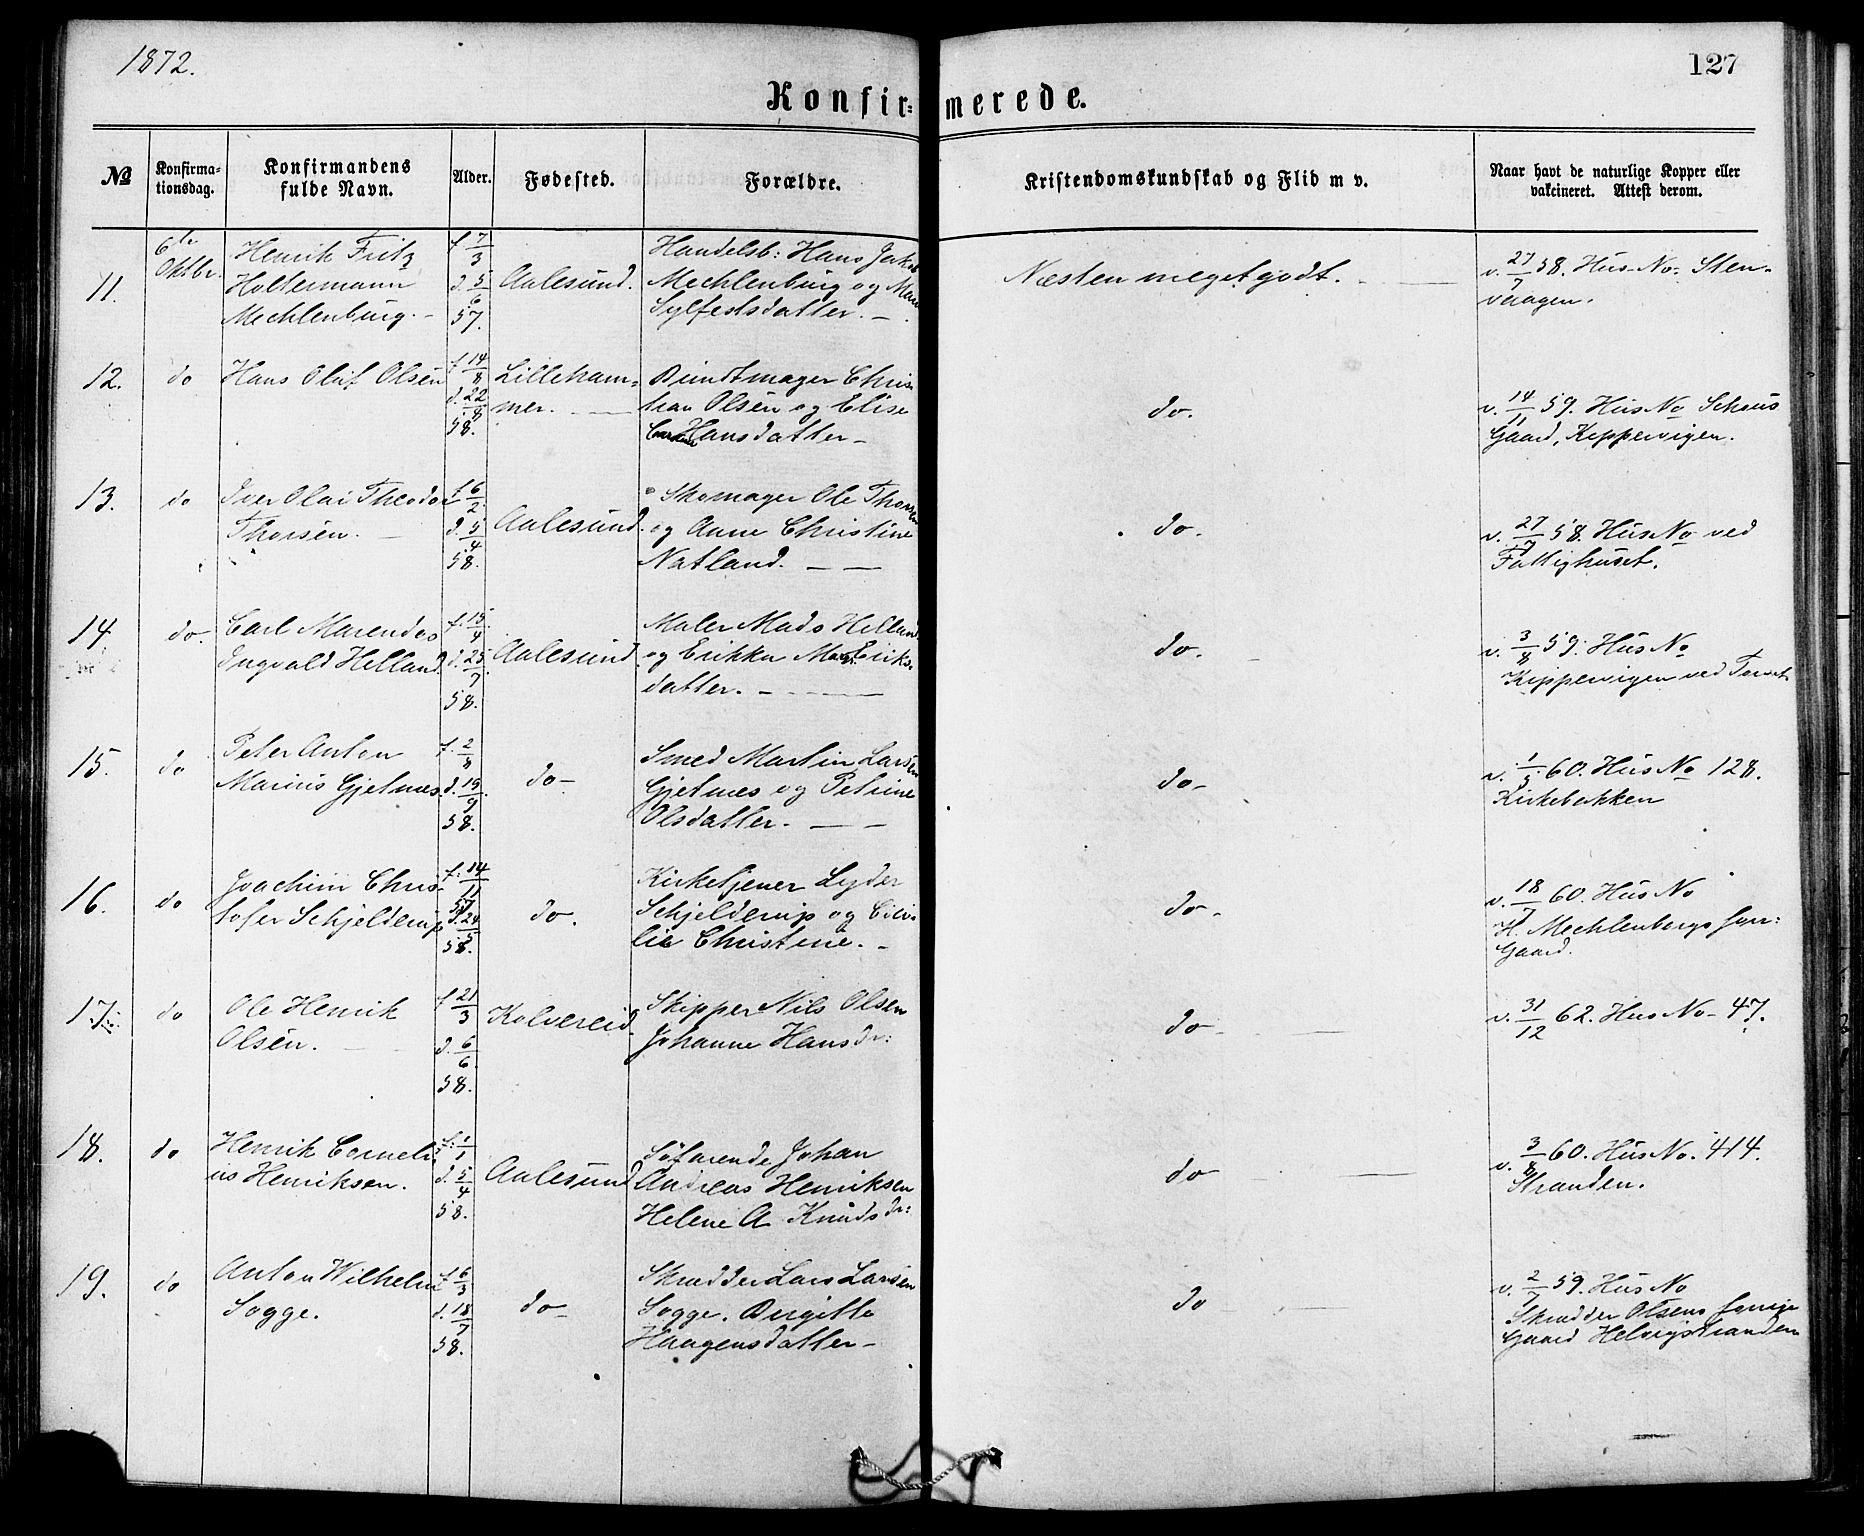 1872.
127
Konfir=merede.
No
Konfirma-
tionsdag.
Konfirmandens
fulde Navn.
Alder.
Fødested.
Forældre.
Kristendomskundskab og Flid m v.
Naar havt de naturlige Kopper eller
vakcineret. Attest derom.
11.
6te
Oktbr.
Henrik Fritz
Holtermann
Mechlenburg. -
f. 7/3
d. 5/6
57.
Aalesund.
Handelsb: Hans Jakob
Mechlenburg og
Sylfestsdatter. -
Næsten meget godt.
v. 27/7 58. Hus No: Sten-
vaagen.
12.
do
Hans Oluf Olsen
f. 14/8
d. 22/8
58.
Lilleham=
mer.
Bundtmager Chris
tian Olsen og Elise
Hansdatter -
do.
v. 14/11 59. Hus No Schous
Gaard, Keppervigen.
13.
do
Iver Olai Theodor
Thorsen.
f. 6/2
d. 5/4
58.
Aalesund.
Skomager Ole Thorsen
og Anne Christine
Natland. - -
do.
v. 27/7 58. Hus No ved
Fattighuset.
14
do.
Carl Marendos
Ingvald Helland.
f. 15/4
d. 25/7
58.
Aalesund
Maler Mads Helland
og Erikka Mar. Eriks-
datter. -
do.
v. 3/8 59. Hus No
Kippervigen ved Torvet
15.
do
Peter Anton
Marius Gjetnes.
f. 2/8
d. 19/9
58.
do-
Smed Martin Larsen
Gjetnes og Petrine
Olsdatter. - -
do-
v. 1/5 60. Hus No 128.
Kirkebakken
16.
do
Joachim Chris-
tofer Schjelderup
f. 14/11
57
d. 24/5
58.
do.
Kirketjener Lyder
Schjelderup og Cici-
lie Christine. -
do-
v. 18/7 60. Hus No
H. Mechlenborgs forr:
Gaard.
17.
do
Ole Henrik
Olsen.
f. 21/3
d. 6/6
58.
Kolvereid
Skipper Nils Olsen
Johanne Hansdr:
do-
v. 31/12 62. Hus No- 47.
18.
do
Henrik Corneli-
us Henriksen.
f. 1/1
d. 5/4
58.
Aalesund
Søfarende Johan
Andreas Henriksen
Helene A Knudsdr:
do
v. 3/8 60. Hus No. 414.
Stranden.
19.
do
Anton Wilhelm
Sogge.
f. 6/3
d. 18/7
58.
do-
Skrædder Lars Larsen
Sogge. Birgitte
Haagensdatter -
do
v. 2/7 59. Hus No
Skrædder Olsens forrige
Gaard Helvigstranden